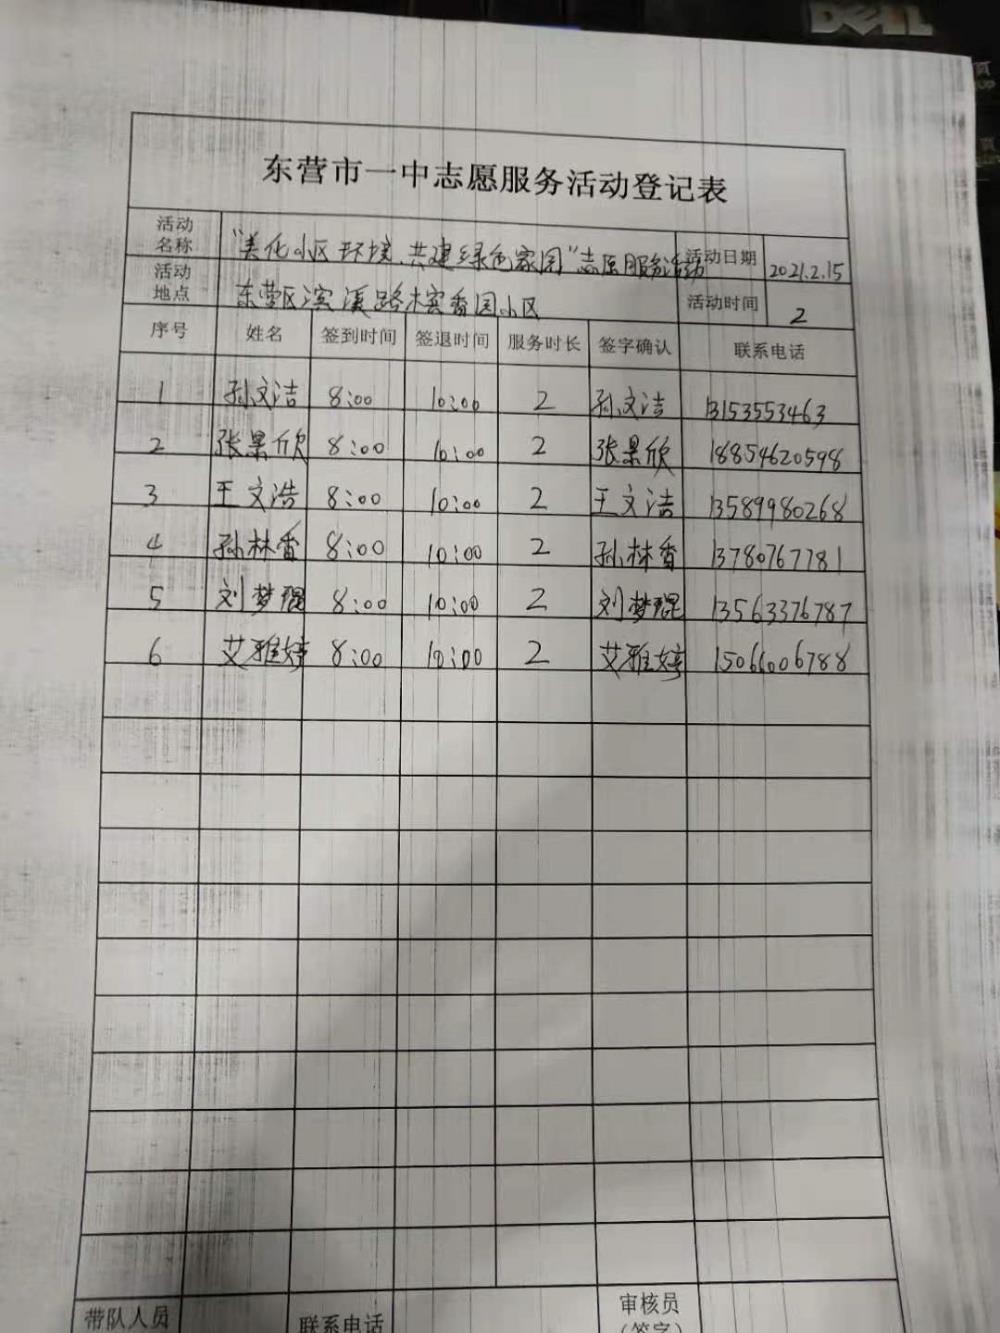 DELL
东营市一中志愿服务活动登记表
活动名称 "美化小区环境、共建绿色家园"志愿服务活动 活动日期 2021.2.15
活动地点 东营区滨溪路木槟香园小区 活动时间 2
序号 姓名 签到时间 签退时间 服务时长 签字确认 联系电话
1 孙文洁 8:00 10:00 2 孙文洁 13153553463
2 张景欣 8:00 10:00 2 张景欣 18854620598
3 王文浩 8:00 10:00 2 王文洁 13589980268
4 孙林香 8:00 10:00 2 孙林香 13780767781
5 刘梦琨 8:00 10:00 2 刘梦琨 13563376787
6 艾雅婷 8:00 10:00 2 艾雅婷 15066006788
带队人员 联系电话 审核员
(签字)